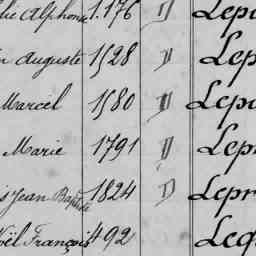 lie Alphonse 1.176 " Lep
n Auguste 1528 " Lep
Marcel 1580 " Lep
Marie 1791 " Lep
s Jean Baptiste 1824 " Lepr
oël François 492 Leq